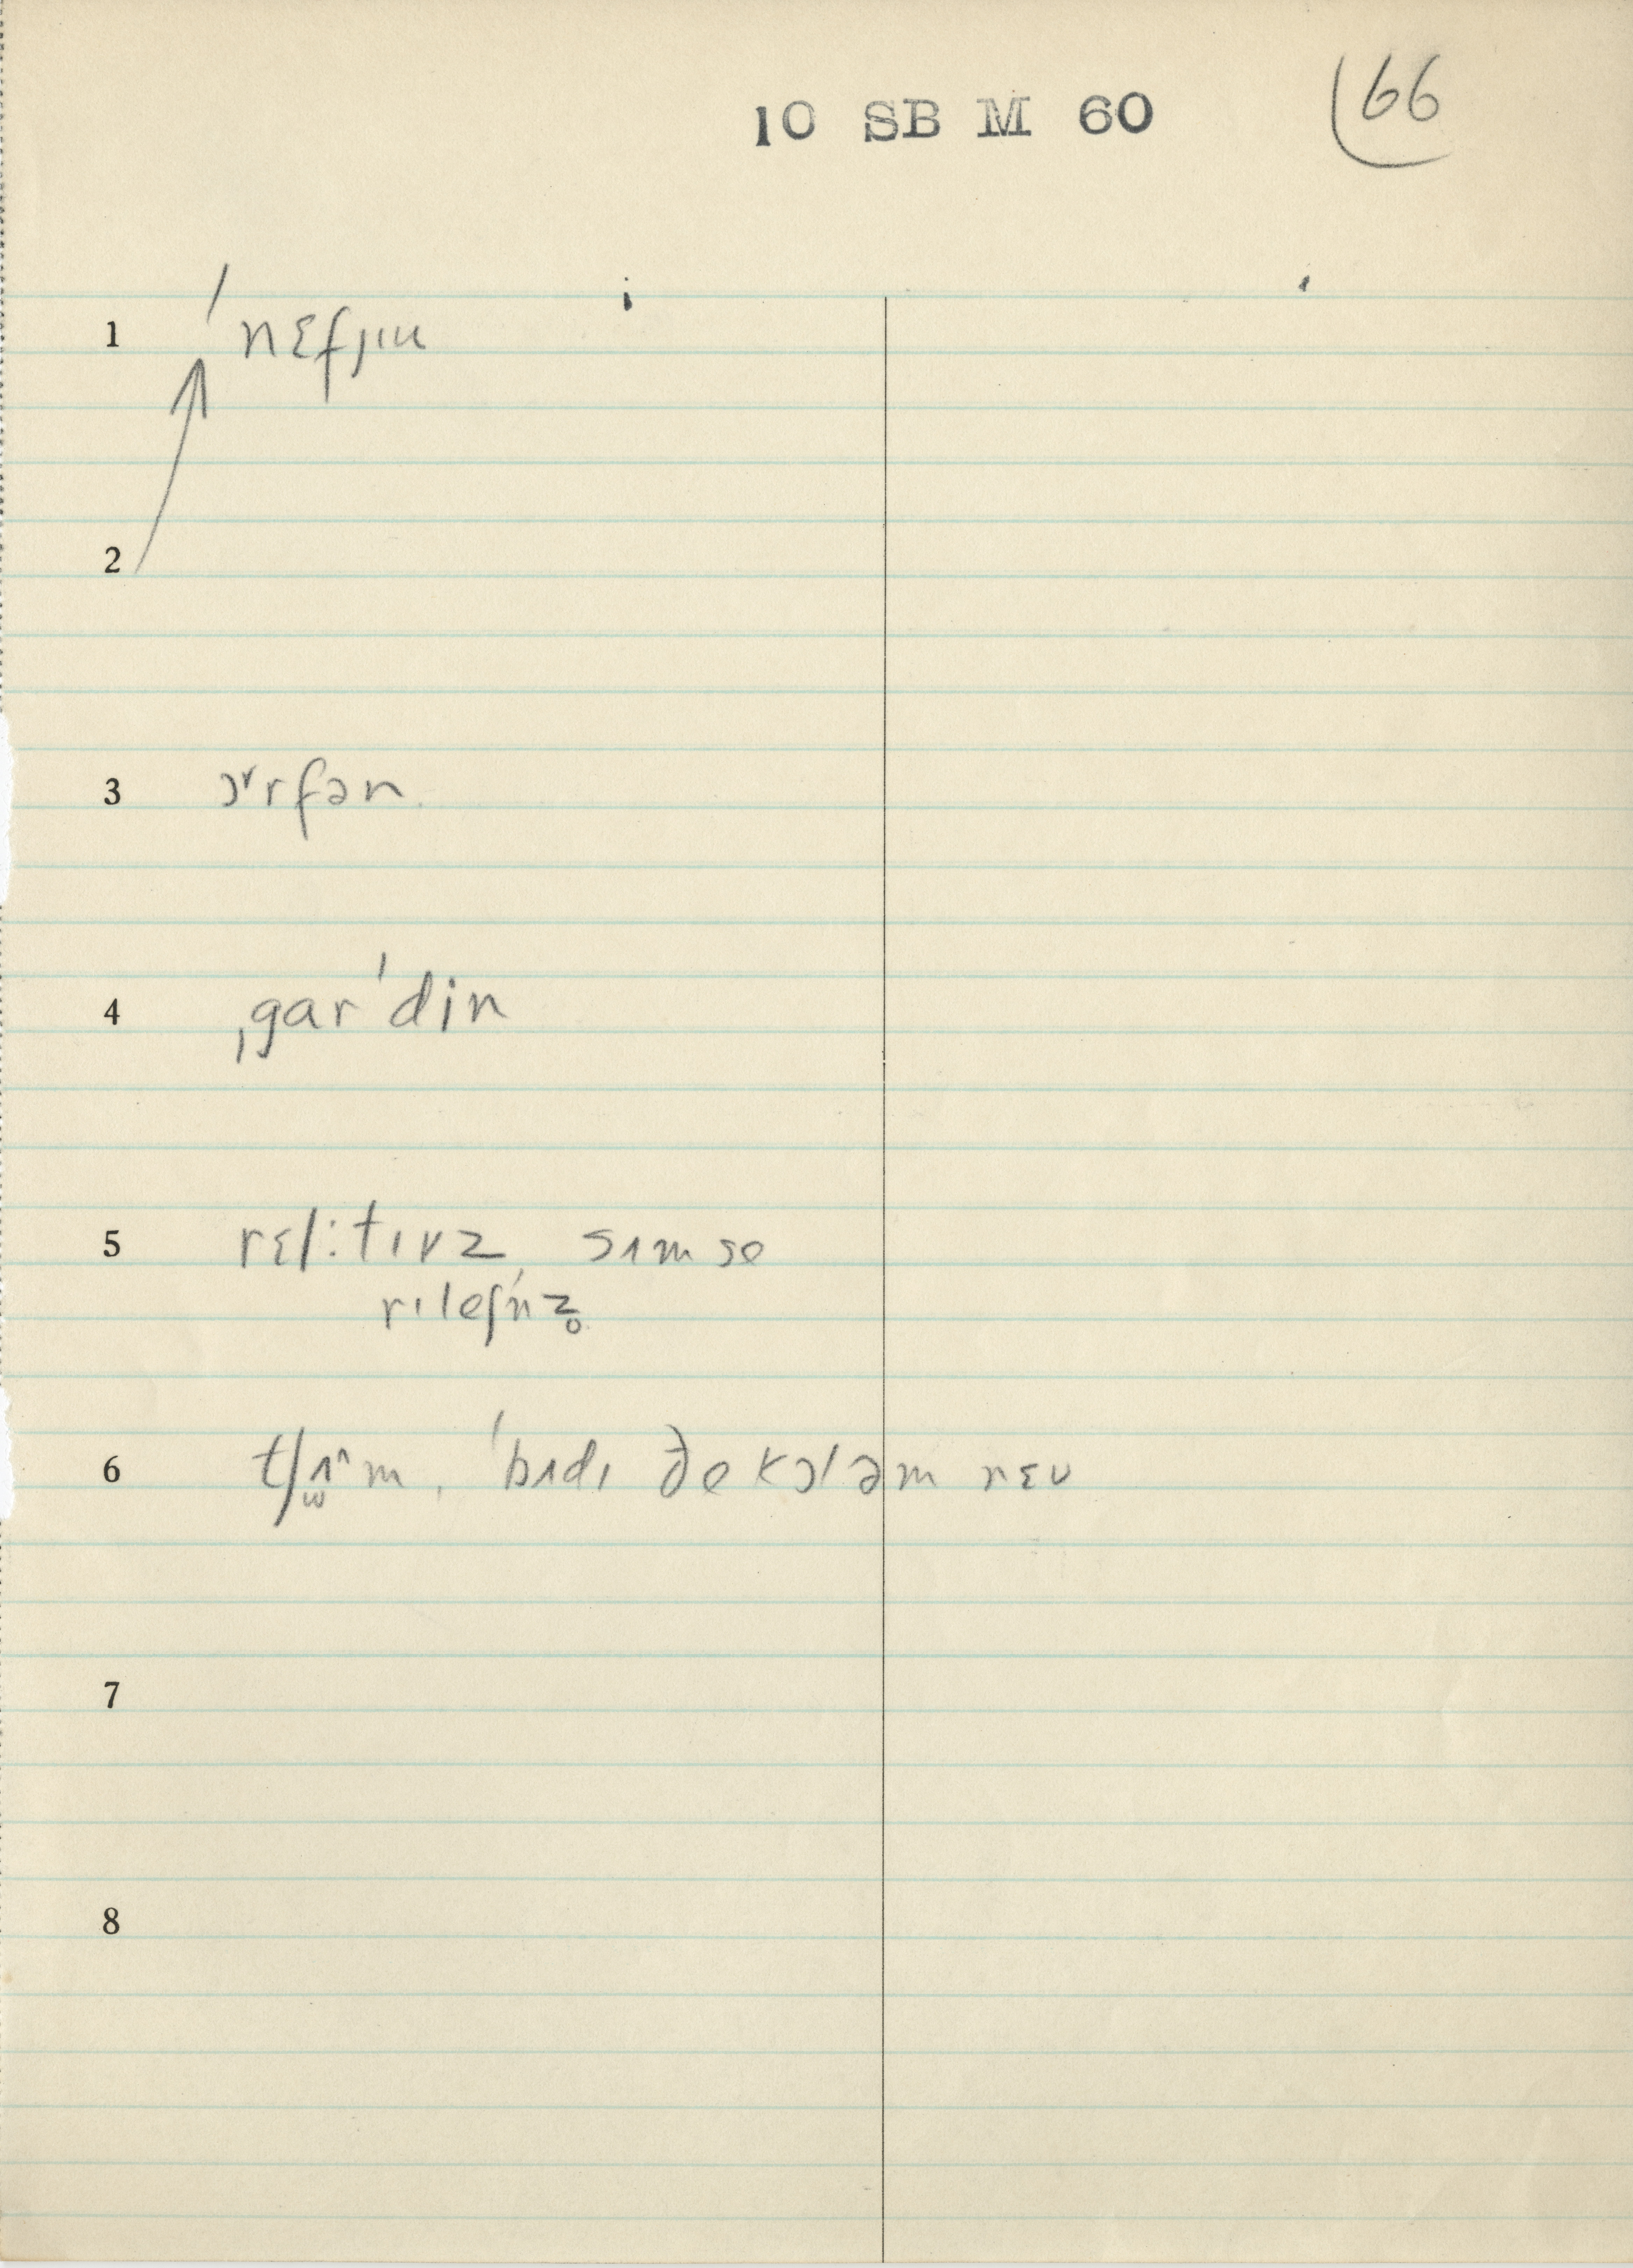 10 SB M 60
66
1 ˈnɛfjɪu
2
3 ɔ˅rfən
4 ˌgarˈdin
5 rɛl:tɪvz, sʌm se
rɪleʃn̩z̥
6 tʃʌ^m, ˈbʌdɪ ðe kɔləm nɛu
7
8